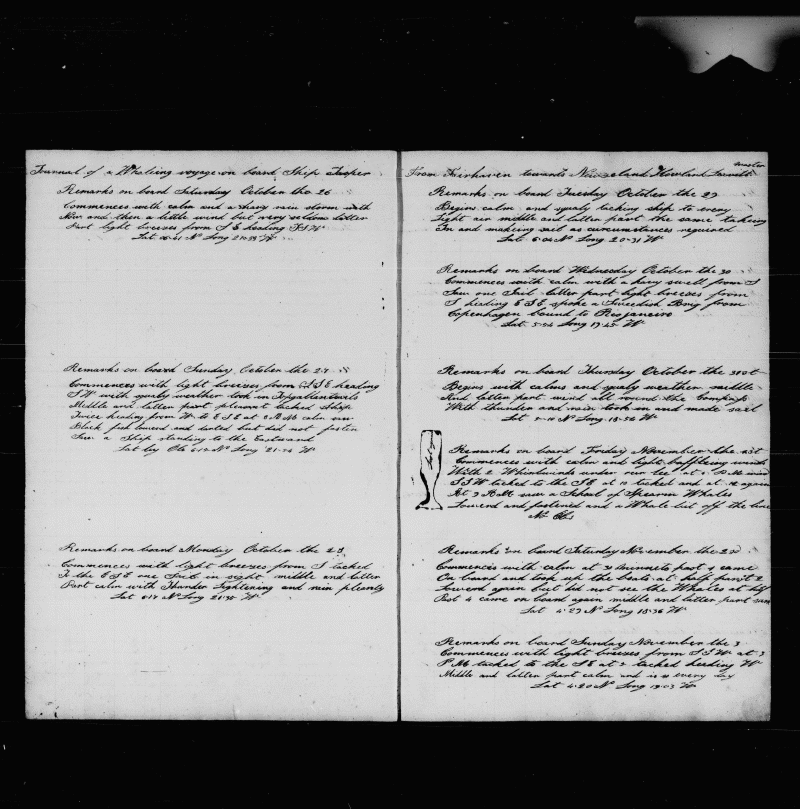 Journal of a Whaleing voyage on board Ship Jasper
Remarks on board Saturday October the 26
Commences with calm and a heavy rain storm with
Now and then a little wind but very seldom latter
Part light breezes from S E heading S S W
Lat 6-41 N Long
Remarks on board Sunday October the 27
Commences with light breezes from S S E heading
S W with squaly weather took in Topgallantsails
Middle and latter part pleasant tacked Ship
Twice heading from W to E S E at A M calm
Black fish lowerd and darted but did not fasten
Saw a Ship standing to the Eastward
Lat by Obs N Long 21-24 W
Remarks on board Monday October the 28
Commences with light breezes from S tacked
To the E S E one Sail in sight middle and latter
Part calm with Thunder Lightening and rain plenty
Lat 6-17 N Long W
master
From Fairhaven towards New Zeeland Howland
Remarks on board Tuesday October the 29
Begins calm and squaly tacking ship to every
Light air middle and latter part the same taking
In and making sail as circumstances required
Lat 6-04 N Long 20-31 W
Remarks on board Wednesday October the 30
Commences with calm with a heavy swell from S
Saw one Sail latter part light breezes from
S heading E S E spoke a Sweedish Brig from
Copenhagen bound to Riojaneiro
Lat 5-54 Long 19-45 W
Remarks on board Thursday October the 31st
Begins with calms and squaly weather middle
And latter part wind all round the Compass
With thunder and rain took in and made sail
Lat N Long 18-56 W
Remarks on board Friday November the 1st
Commences with calm and light baffleing winds
With 2 Whirlwinds under our lee at P M wind
S S W tacked to the S E at 10 tacked and at 12 again
At 9 A M saw a School of Spearm Whales
Lowerd and fastened and a Whale bit off the line
No Obs
Remarks on board Saturday November the 2nd
Commences with calm at 30 minnets past came
On board and took up the boats at half past 2
Lowerd again but did not see the Whales at half
Past 4 came on board again middle and latter part same
Lat 4-29 N Long 18-56 W
Remarks on board Sunday November the 3
Commences with light breezes from S S W at 3
P M tacked to the S E at tacked heading W
Middle and latter part calm and is so every day
Lat 4-20 N Long 19-03 W